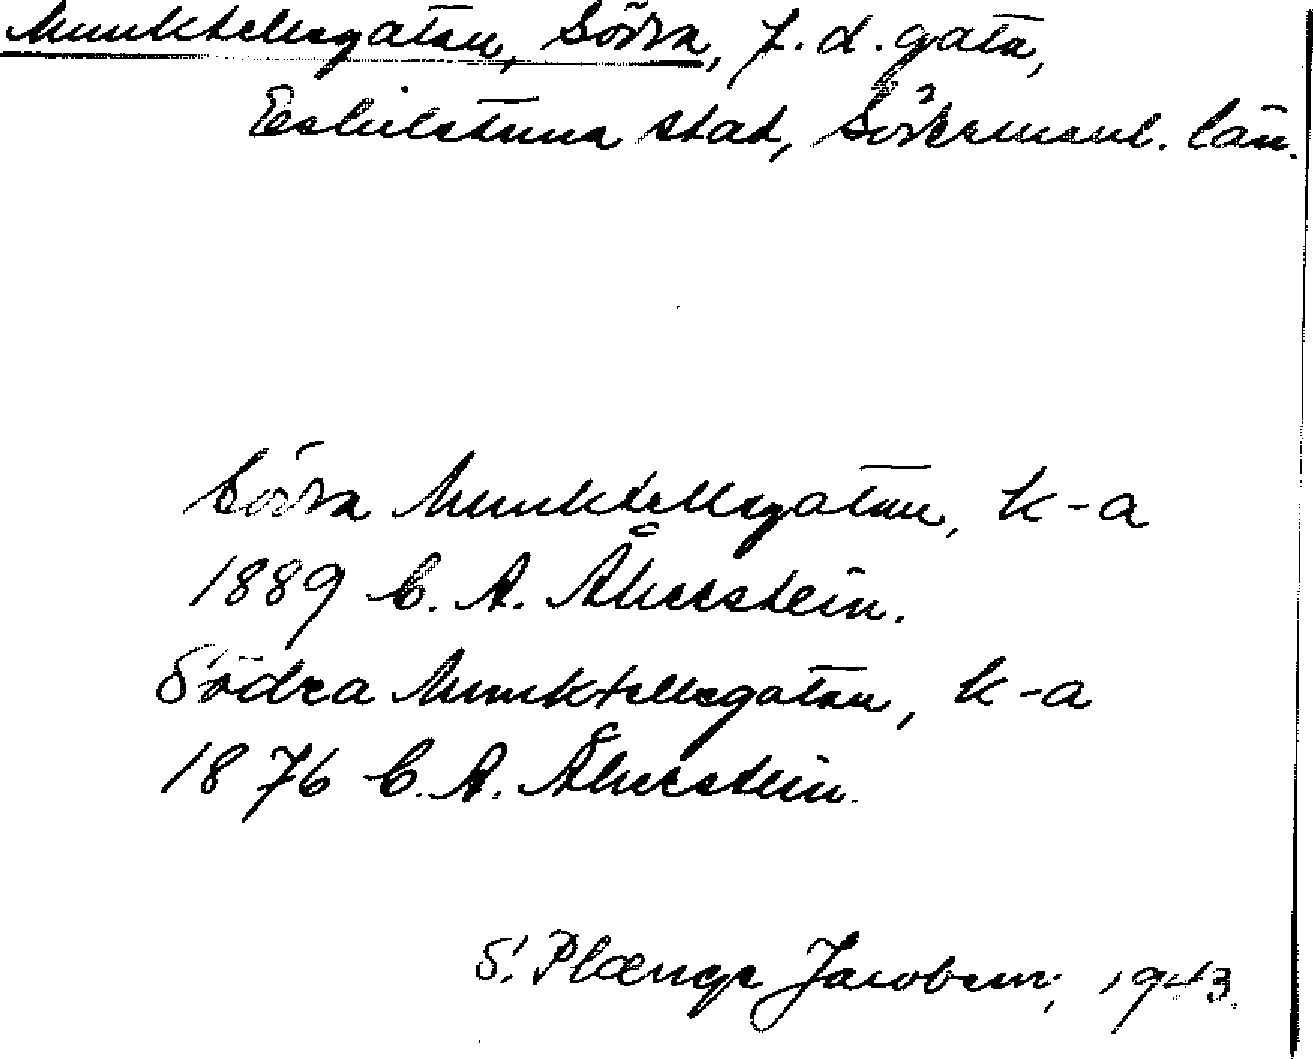 Munktellsgatan, Södra, f. d. gata,
Eskilstuna stad, Södermanl. län.
Södra Munktellsgatan, k-a
1889 C. A. Åkerstein.
Södra Munktellsgatan, k-a
1876 C. A. Åkerstein.
S. Plænge Jacobson, 1943.